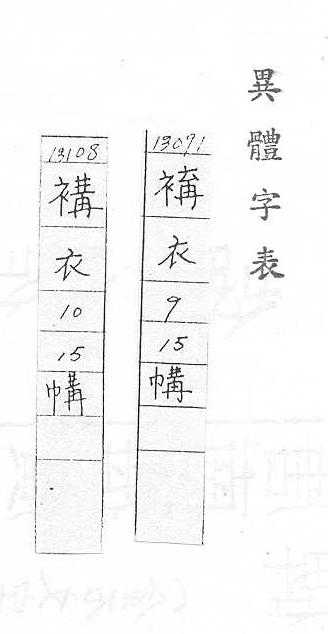 異體字表
13071
衣
9
15
㡚
13108
褠
衣
10
15
㡚